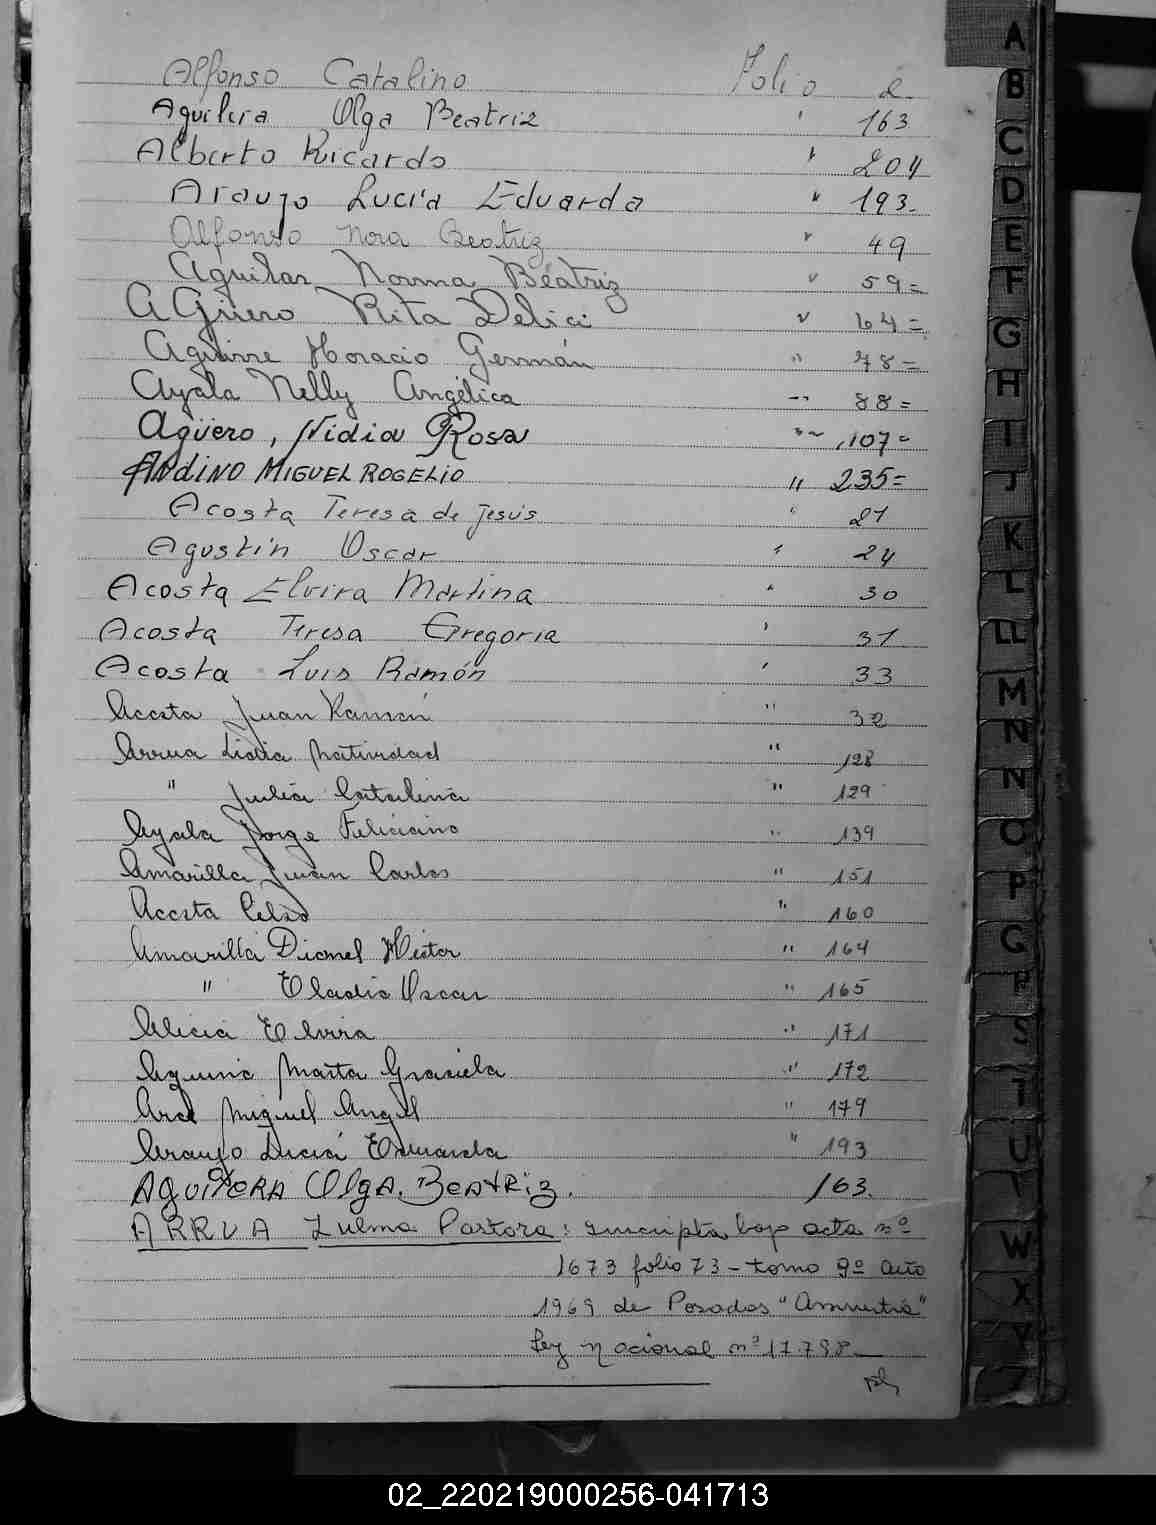 Alfonso Catalino Folio 2
Aguilera Olga Beatriz " 163
Alberto Ricardo " 204
Araujo Lucía Eduarda " 193.
Alfonso Nora Beatriz " 49
Aguilar Norma Beatriz " 59=
Agüero Rita Delici " 64=
Aguirre Horacio Germán " 78=
Ayala Nelly Angélica " 88=
Agüero, Nidia Rosa " 107=
ANDINO MIGUEL ROGELIO " 235=
Acosta Teresa de Jesús " 21
Agustín Oscar " 24
Acosta Elvira Martina " 30
Acosta Teresa Gregoria " 31
Acosta Luis Ramón " 33
Acosta Juan Ramón " 32
Arrua Lidia Natividad " 128
" Julia Catalina " 129
Ayala Jorge Feliciano " 139
Amarilla Juan Carlos " 151
Acosta Celso " 160
Amarilla Dionel Héctor " 164
" Eladio Oscar " 165
Alicia Elvira " 171
Aquino Marta Graciela " 172
Arce Miguel Angel " 179
Araujo Lucía Eduarda " 193
AGUILERA OlgA. BeatRiz. 163.
ARRUA Zulma Pastora: inscripta bajo acta nº
1673 folio 73 - tomo 9º año
1969 de Posadas "Amnistía"
Ley nacional nº 17.798.
A
B
C
D
E
F
G
H
I
J
K
L
LL
M
N
N
O
P
S
U
W
X
Y
Z
02_220219000256-041713